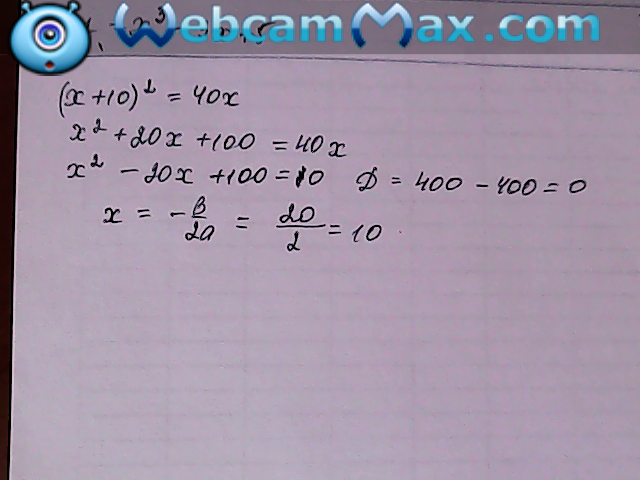 WebcamMax.com
(x+10)² = 40x
x² + 20x + 100 = 40x
x² - 20x + 100 = 0 D = 400 - 400 = 0
x = -B/2a = 20/2 = 10